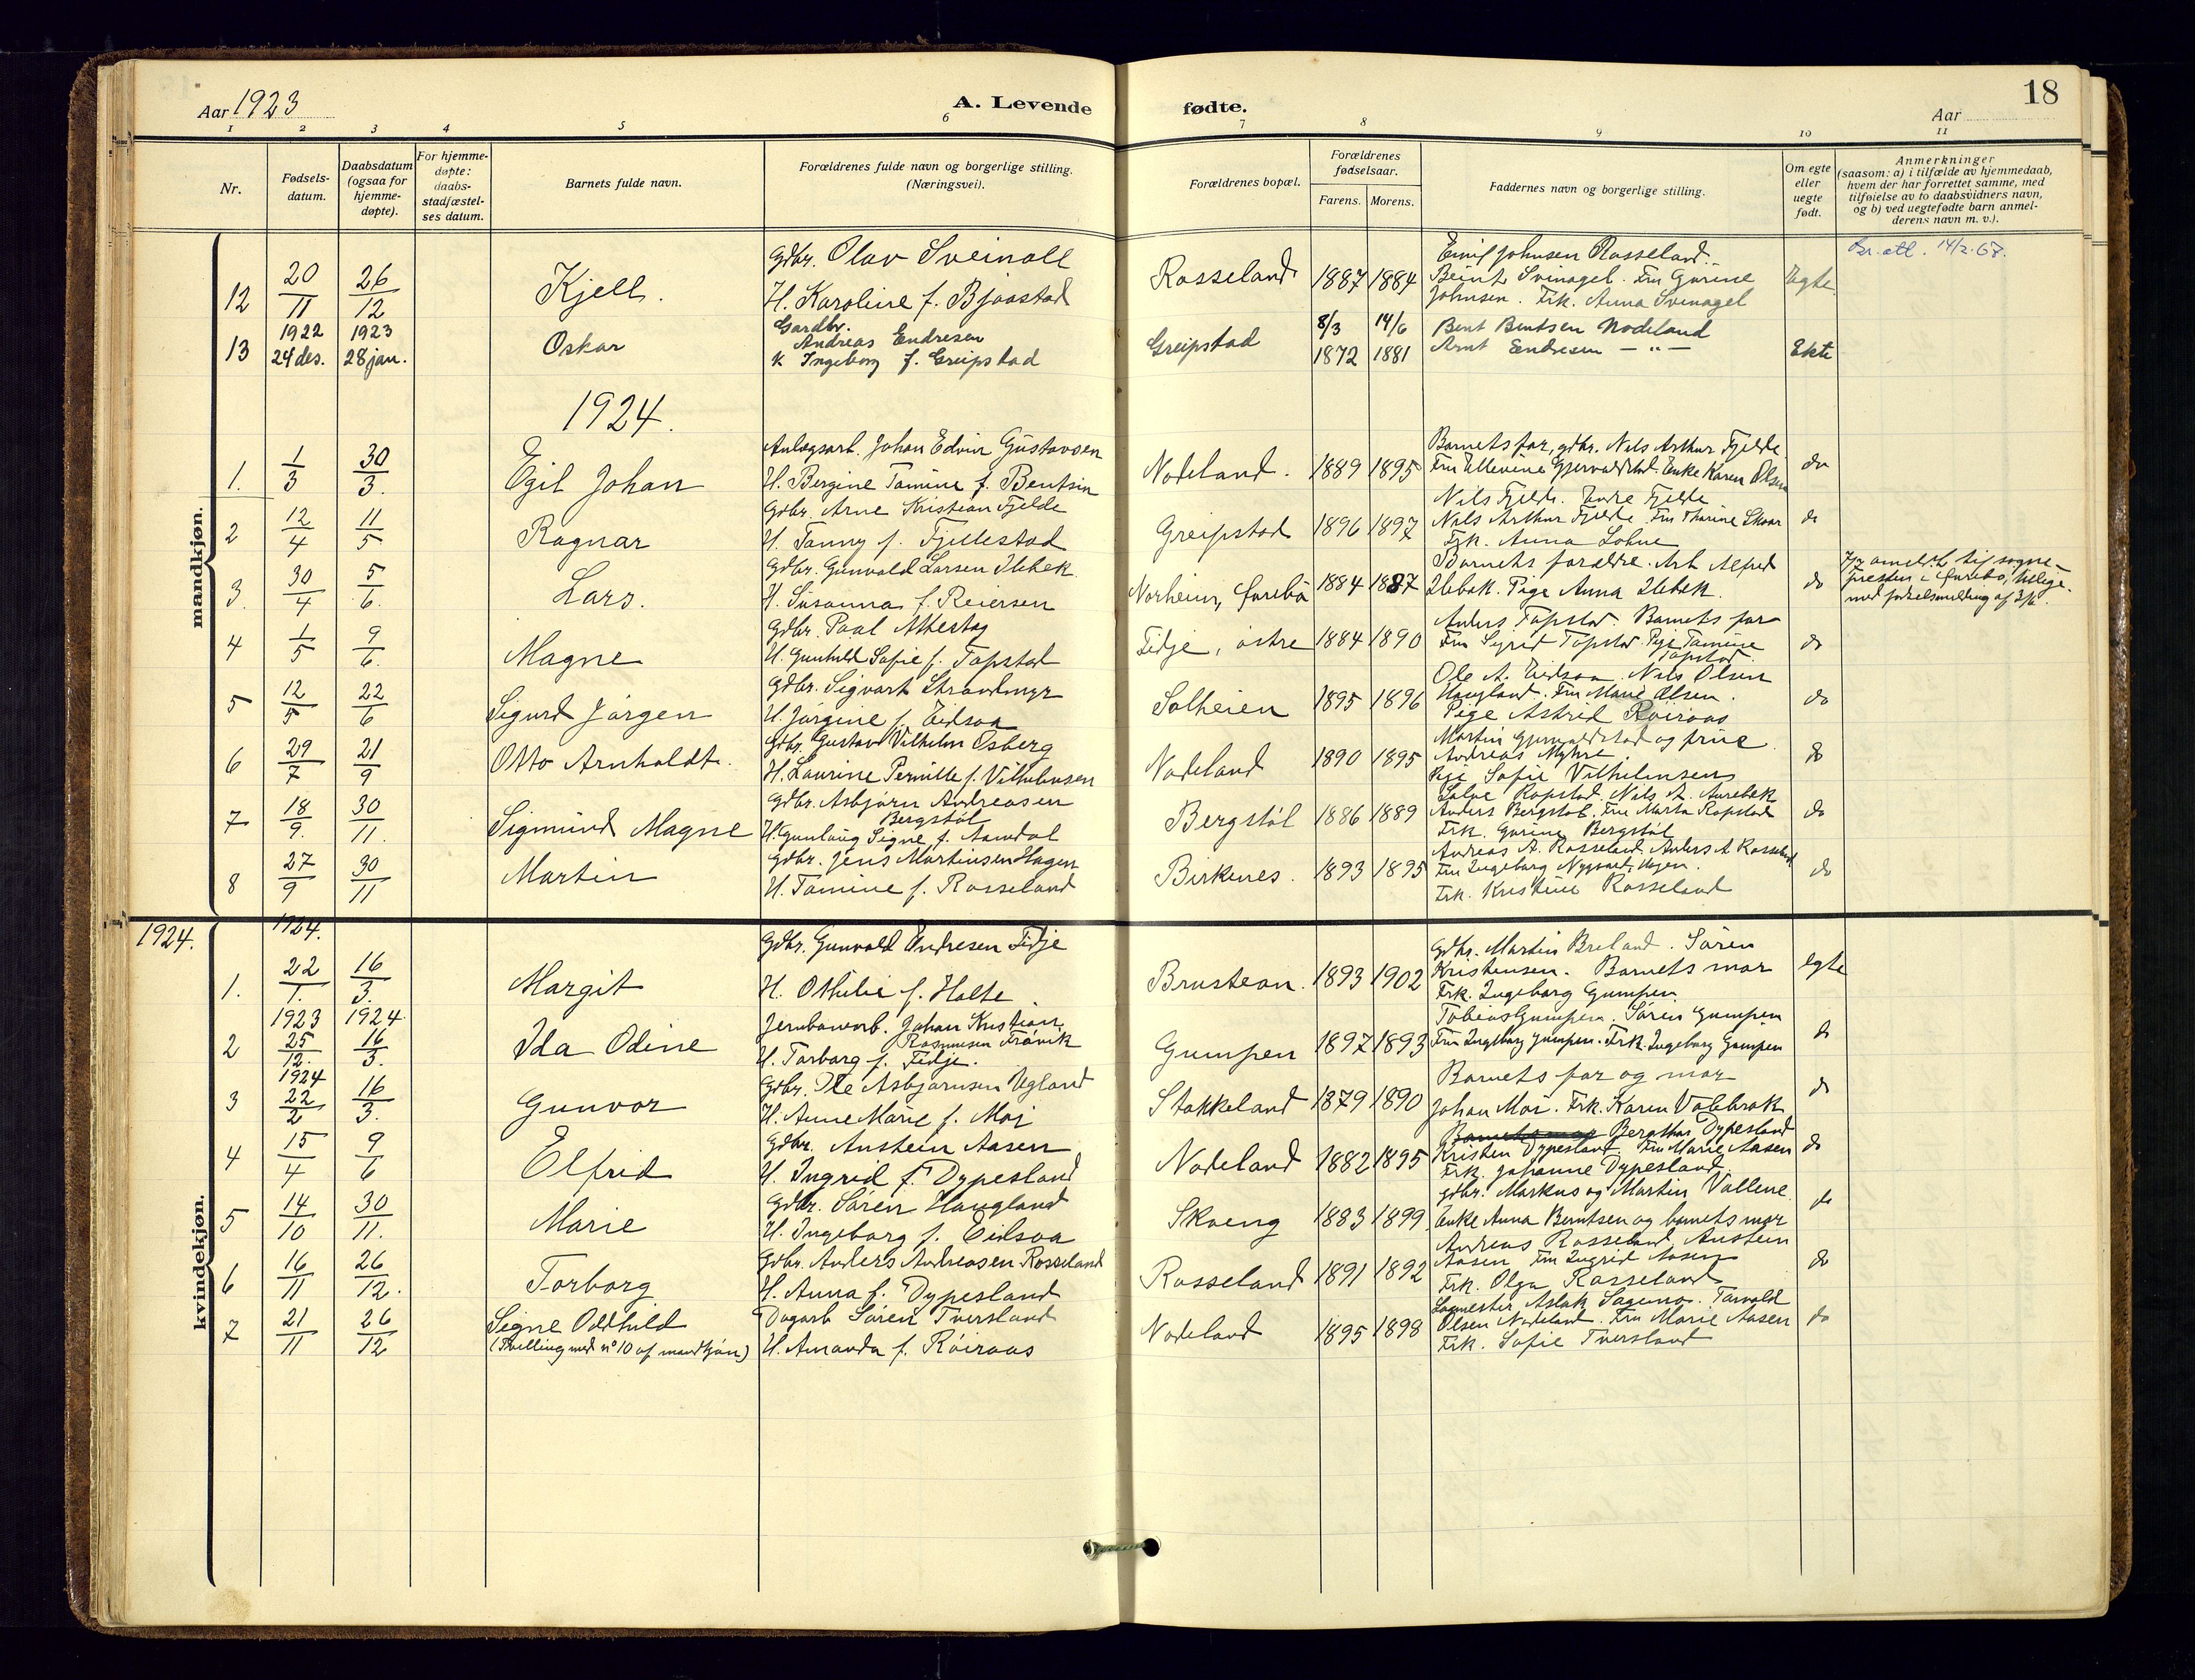 Aar 1923
A. Levende fødte.
Aar
18
1 2 3 4 5 6 7 8 9 10 11
Nr.
Fødsels-
datum.
Daabsdatum
(ogsaa for
hjemme-
døpte).
For hjemme-
døpte:
daabs-
stadfæstel-
ses datum.
Barnets fulde navn.
Forældrenes fulde navn og borgerlige stilling.
(Næringsvei).
Forældrenes bopæl.
Forældrenes
fødselsaar.
Farens. Morens.
Faddernes navn og borgerlige stilling.
Om egte
eller
uegte
født.
Anmerkninger
(saasom: a) i tilfælde av hjemmedaab,
hvem der har forrettet samme, med
tilføielse av to daabsvidners navn,
og b) ved uegtefødte barn anmel-
derens navn m. v.).
mandkjøn.
12 20/11 26/12 Kjell.
Gdbr. Olav Sveinall
H. Karoline f. Bjaastad
Rosseland 1887 1884
Emil Johnsen Rosseland.
Beint Svinagel. Fru Gurine
Johnsen. Frk. Anna Svinagel
Egte
14/2.68.
1922 1923
13 24 des. 28 jan. Oskar
Gardbr.
Andreas Endresen
k Ingeborg f. Greipstad
Greipstad
8/3 14/6
1872 1881
Bent Bentsen Nodeland
Arnt Endresen — " —
Ekte
1924.
1. 1/3 30/3. Egil Johan
Anlægsarb. Johan Edvin Gustavsen
H. Bergine Tomine f. Bentsin
Nodeland. 1889 1895
Barnets far, gdbr. Nils Arthur Fjelde
Fru Ellevine Gjervaldstad. Enke Karen Olsen
do
2 12/4 11/5 Ragnar
Gdbr. Arne Kristian Fjelde
H. Tanny f. Fjellestad
Greipstad 1896 1897
Nils Fjelde. Endre Fjelde
Nils Arthur Fjelde. Fru Thorine Skaar
Frk. Anna Lohne
do
3. 30/4 5/6. Lars.
Gdbr. Gunvald Larsen Ilebek
H. Susanna f. Reiersen
Norheim, Øvrebø 1884 1887
Barnets forældre. Arb Alfred
Ilebæk. Pige Anna Ilebæk.
do
7/7 anmeldt til sogne-
presten i Øvrebø, tillige-
med fødselsmelding af 3/6.
4 1/5 9/6. Magne
Gdbr. Paal
H. Gunhild Sofie f. Tapstad
Tidje, østre 1884 1890
Anders Tapstad. Barnets far
Fru Sigrid Tapstad. Pige Tomine
Tapstad.
do
5 12/5 22/6 Sigurd Jørgen
Gdbr. Sigvart Strandmyr
H. Jørgine f. Eidsaa
Solheien 1895 1896
Ole A. Eidsaa. Nils Olsen
Haugland. Fru Marie Olsen.
Pige Astrid Røiraas
do
6 29/7 21/9 Otto Arnholdt.
Gdbr. Gustav Vilhelm Osberg
H. Laurine Pernille f. Vilhelmsen
Nodeland 1890 1895
Martin Gjervaldstad og frue.
Andreas Myhre
Pige Sofie Vilhelmsen
do
7 18/9. 30/11. Sigmund Magne
Gdbr. Asbjørn Andreasen
Bergstøl
H. Gunlaug Signe f. Aamdal
Bergstøl 1886 1889
Salve Ropstad. Nils A. Aurebæk
Anders Bergstøl. Fru Marta Ropstad
Frk. Gurine Bergstøl
do
8 27/9 30/11 Martin
Gdbr. Jens Martinsen Hagen
H. Tomine f. Rosseland
Birkenes. 1893 1895
Andreas A. Rosseland Anders A Rosseland
Fru Ingeborg Nygaard, Hagen.
Frk. Kristine Rosseland
do
1924.
kvindekjøn.
1924.
1. 22/1. 16/3. Margit
Gdbr. Gunvald Endresen Tidje
H. Othilie f. Holte.
Brustean. 1893 1902
Gdbr. Martin Breland. Søren
Kristensen. Barnets mor
Frk. Ingeborg Gumpen
egte
1923 1924
2 25/12. 16/3. Ida Odine
Jernbanearb. Johan Kristian
Rasmusen Frøvik
H. Torborg f. Tidje.
Gumpen 1897 1893
Tobias Gumpen. Søren Gumpen
Fru Ingeborg Gumpen. Frk. Ingeborg Gumpen
do
1924
3 22/2 16/3. Gunvor
Gdbr. Ole Asbjørnsen Ugland
H. Anne Marie f. Moi
Stokkeland 1879 1890
Barnets far og mor
Johan Moi. Frk. Karen Valebrok
do
4 15/4 9/6 Elfrid
Gdbr. Anstein Aasen
H. Ingrid f. Dypesland
Nodeland 1882 1895
Barnets mor Bergthor Dypesland
Kristen Dypesland. Fru Marie Aasen
Frk. Johanne Dypesland.
do
5 14/10 30/11. Marie
Gdbr. Søren Haugland
H. Ingeborg f. Eidsaa
Skoeng 1883 1899
gdbr. Markus og Martin Vallene.
Enke Anna Berntsen og barnets mor
do
6 16/11 26/12. Torborg
Gdbr. Anders Andreasen Rosseland
H. Anna f. Dypesland
Rosseland 1891 1892
Andreas Rosseland. Anstein
Aasen Fru Ingrid Aasen
Frk. Olga Rosseland
do
7 21/11 26/12 Signe Oddhild
(Tvilling med no 10 af mandkjøn)
Dagarb Søren Tversland
H. Amanda f. Røiraas
Nodeland 1895 1898
Sagmester Aslak Sagmo. Torvald
Olsen Nodeland. Fru Marie Aasen
Frk. Sofie Tversland
do